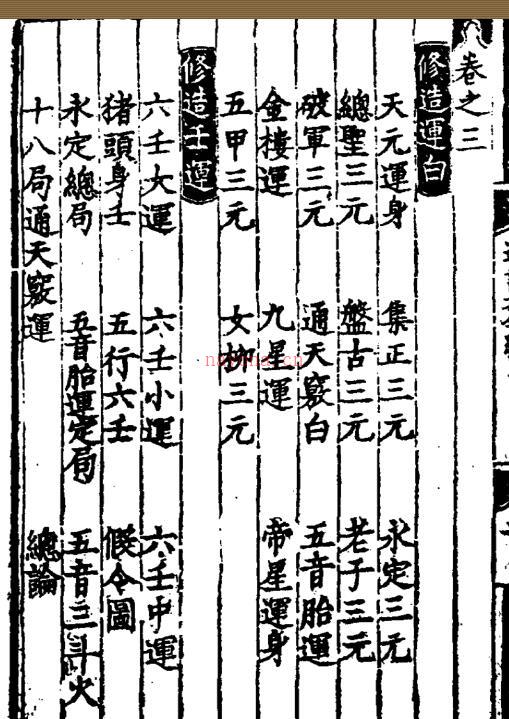 卷之三
修造運白
天元運身 集正三元 永定三元
總聖三元 盤古三元 老子三元
破軍三元 通天竅白 五音胎運
金樓運 九星運 帝星運身
五甲三元 女抑三元
修造壬運
六壬大運 六壬小運 六壬中運
猪頭身壬 五行六壬 假令圖
永定總局 五音胎運定局 五音三斗火
十八局通天竅運 總論